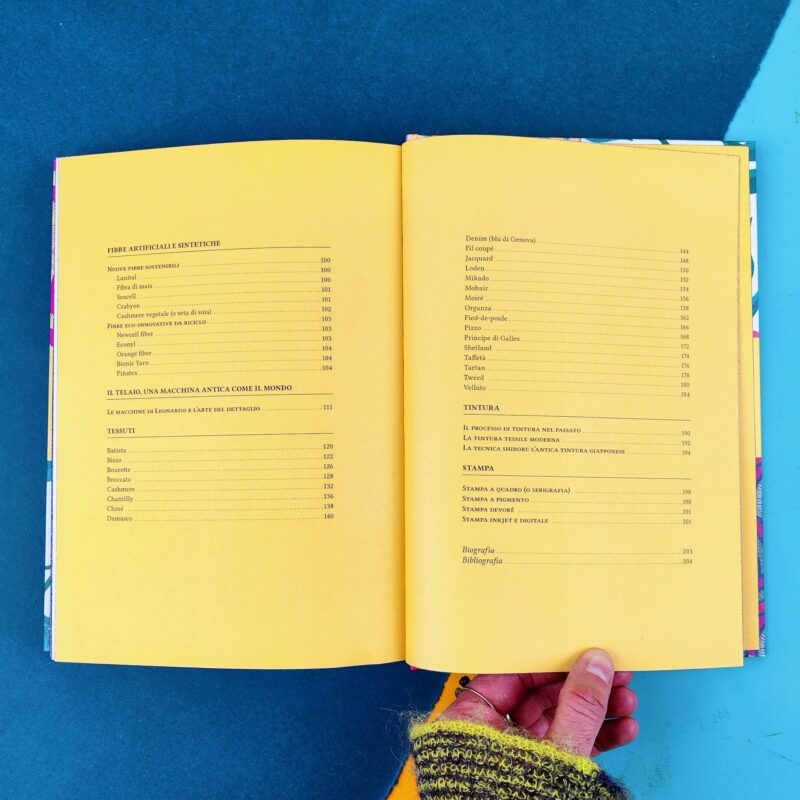 FIBRE ARTIFICIALI E SINTETICHE
Nuove fibre sostenibili 100
Lanital 100
Fibra di mais 100
Seacell 101
Crabyon 101
Cashmere vegetale (o seta di soia) 102
Fibre eco-innovative da riciclo 103
Newcell fiber 103
Econyl 103
Orange fiber 104
Bionic Yarn 104
Piñatex 104
IL TELAIO, UNA MACCHINA ANTICA COME IL MONDO
Le macchine di Leonardo e l'arte del dettaglio 111
TESSUTI
Batista 120
Bisso 122
Bourette 126
Broccato 128
Cashmere 132
Chantilly 136
Chiné 138
Damasco 140
Denim (blu di Genova) 144
Fil coupé 148
Jacquard 150
Loden 152
Mikado 154
Mohair 156
Moiré 158
Organza 162
Pied-de-poule 166
Pizzo 168
Principe di Galles 172
Shetland 174
Taffetà 176
Tartan 178
Tweed 180
Velluto 184
TINTURA
Il processo di tintura nel passato 190
La tintura tessile moderna 192
La tecnica shiboru l'antica tintura giapponese 194
STAMPA
Stampa a quadro (o serigrafia) 198
Stampa a pigmento 198
Stampa devoré 201
Stampa inkjet e digitale 201
Biografia 203
Bibliografia 204